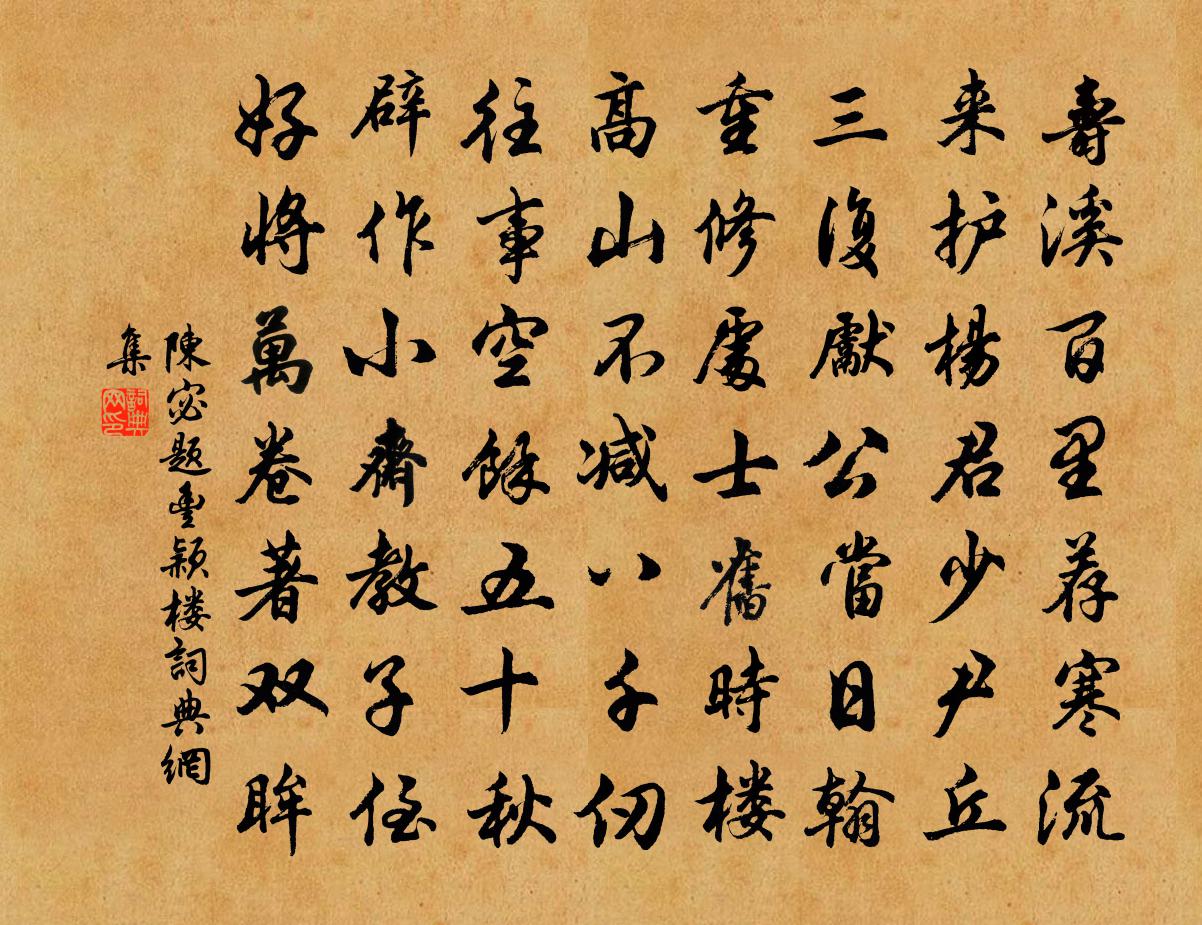 壽溪百里荐寒流
来护楊君少尹丘
三復獻公當日翰
重修處士舊時楼
高山不减八千仞
往事空餘五十秋
辟作小齋教子侄
好將萬卷著双眸
陳宓題豊穎楼詞典網
集
詞典網印